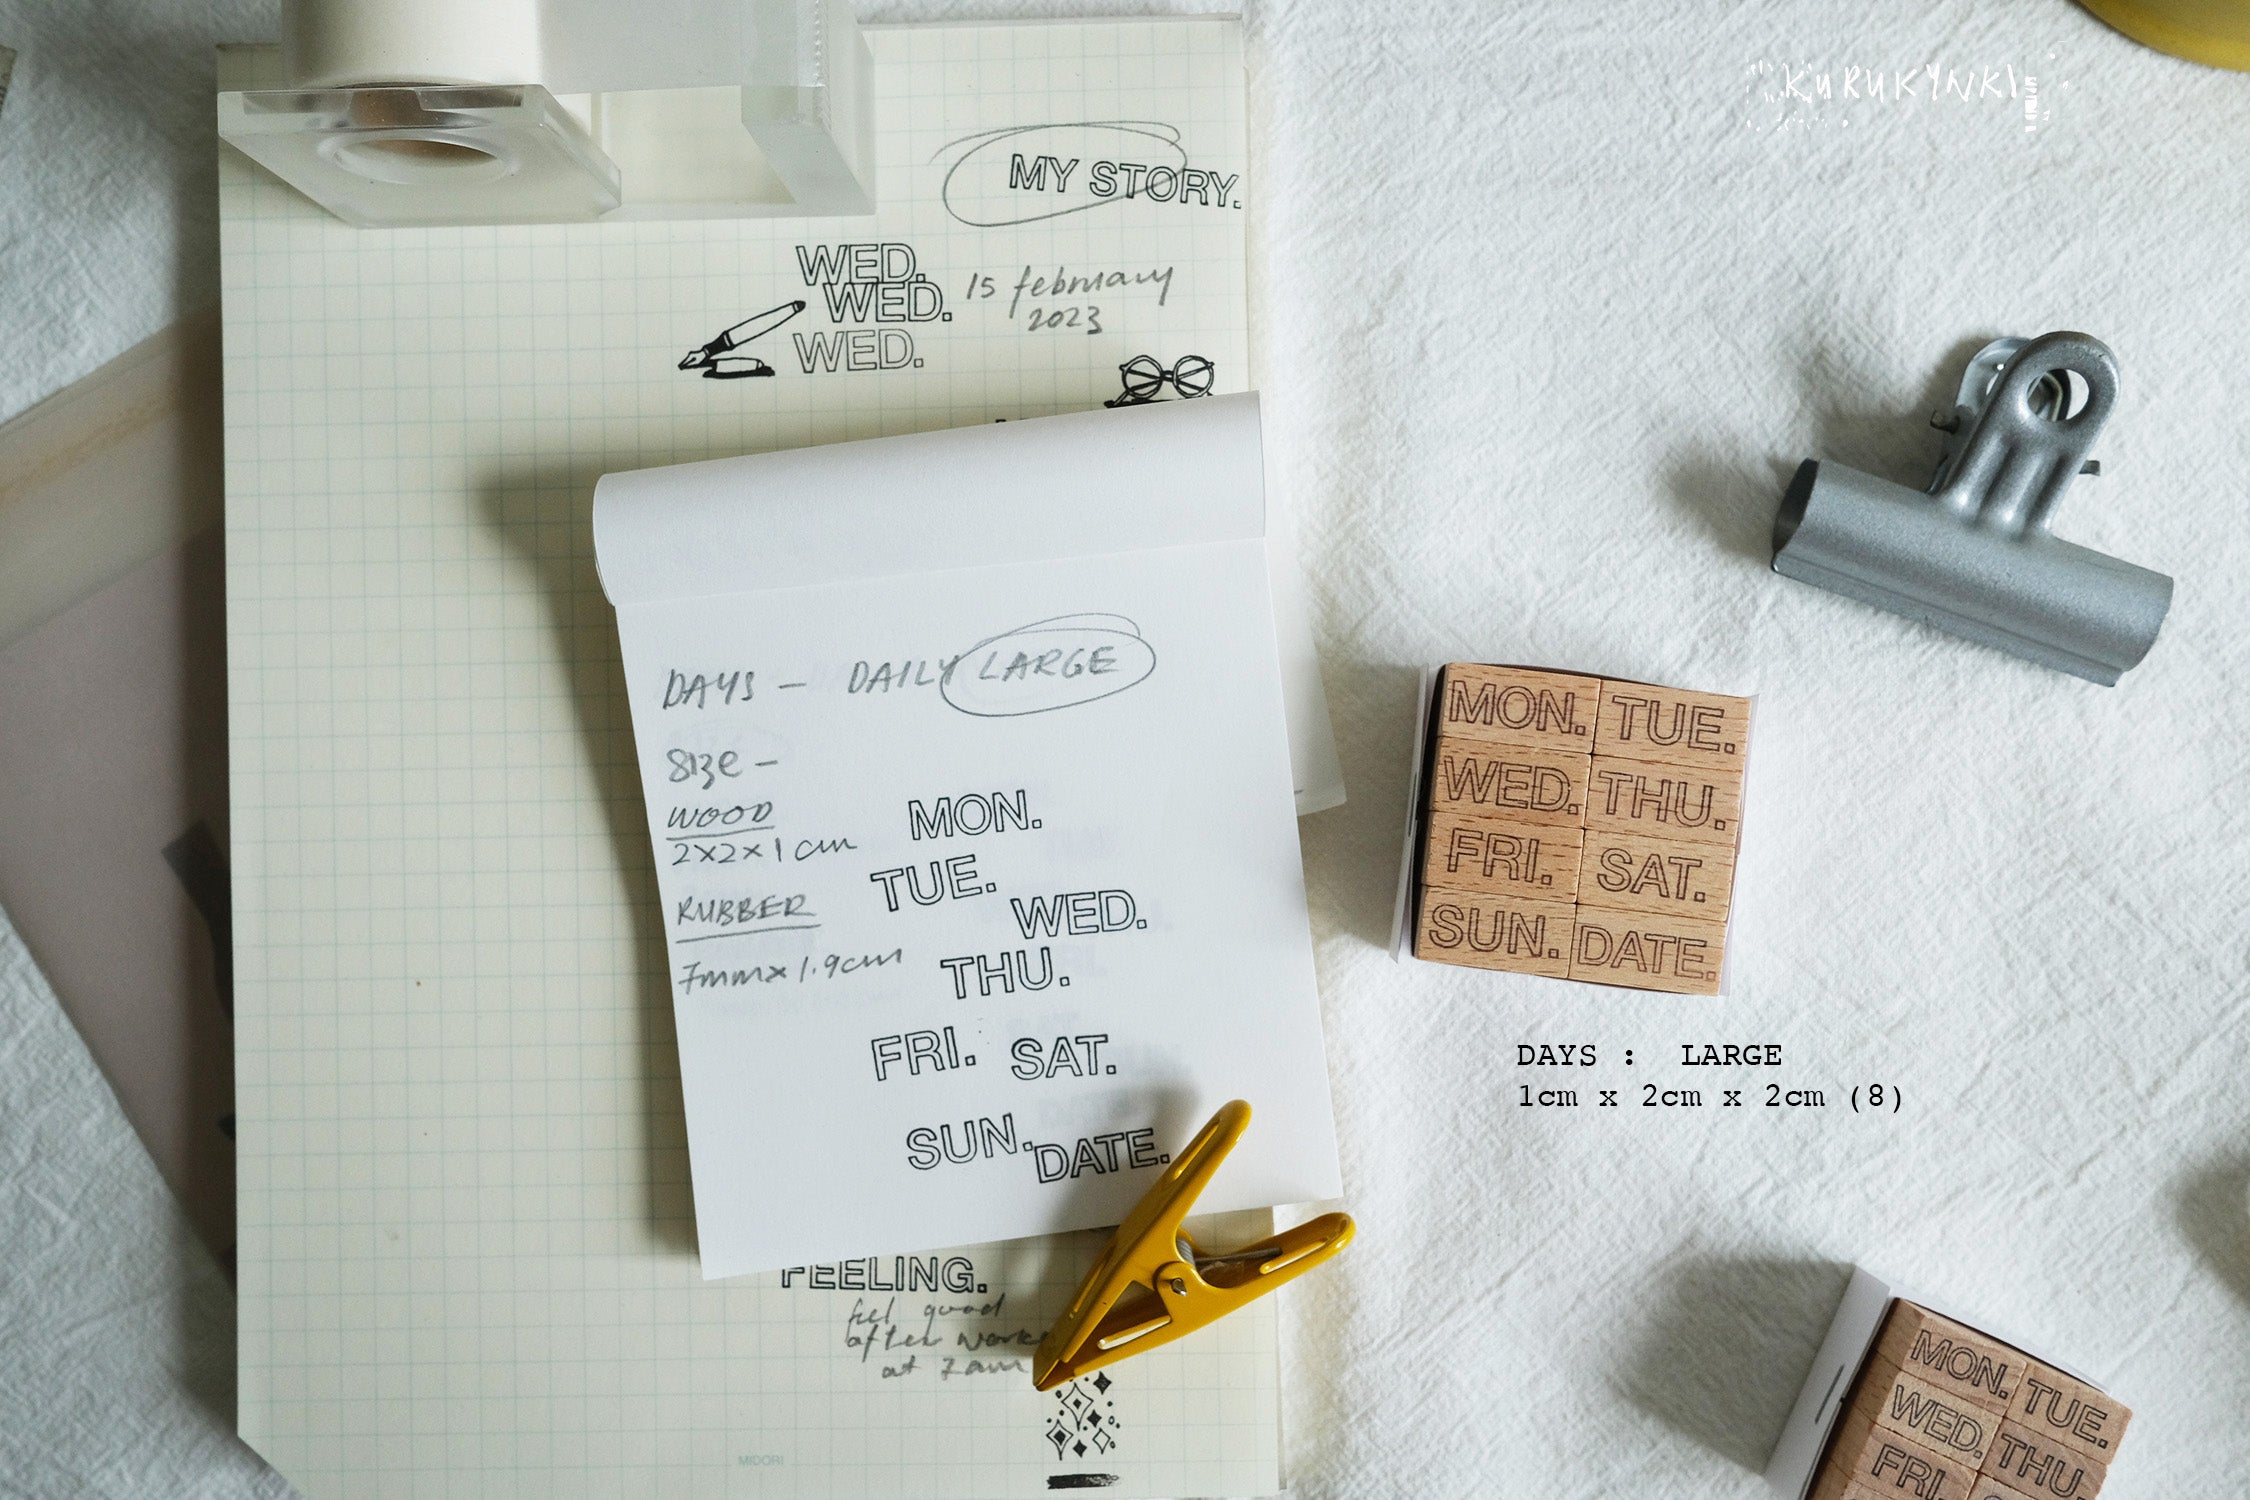 KURUKYNKI
MY STORY.
WED.
WED.
WED.
15 february
2023
DAYS - DAILY LARGE
SIZE -
WOOD
2x2x1 cm
RUBBER
7mm x 1.9cm
MON.
TUE.
WED.
THU.
FRI. SAT.
SUN. DATE.
FEELING.
feel good
after work
at 7am
MIDORI
MON. TUE.
WED. THU.
FRI. SAT.
SUN. DATE.
DAYS : LARGE
1cm x 2cm x 2cm (8)
MON. TUE.
WED. THU.
FRI.